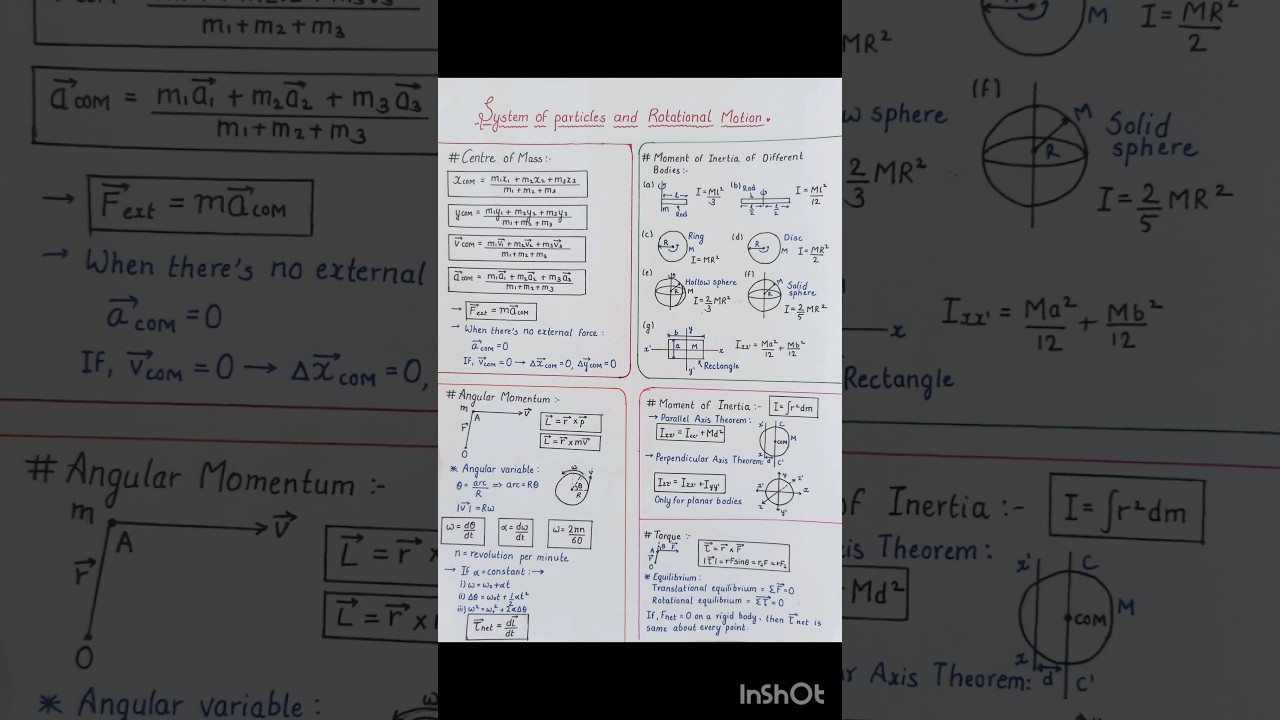 System of particles and Rotational Motion.
# Centre of Mass:-
xCOM = m₁x₁ + m₂x₂ + m₃x₃ / m₁ + m₂ + m₃
yCOM = m₁y₁ + m₂y₂ + m₃y₃ / m₁ + m₂ + m₃
v⃗COM = m₁v⃗₁ + m₂v⃗₂ + m₃v⃗₃ / m₁ + m₂ + m₃
a⃗COM = m₁a⃗₁ + m₂a⃗₂ + m₃a⃗₃ / m₁ + m₂ + m₃
→ F⃗ext = ma⃗COM
→ When there's no external force:
a⃗COM = 0
If, v⃗COM = 0 → Δx⃗COM = 0, Δy⃗COM = 0
# Moment of Inertia of Different
Bodies:-
(a) l m Rod I = Ml²/3
(b) Rod l/2 l/2 I = Ml²/12
(c) R Ring M I = MR²
(d) R Disc M I = MR²/2
(e) R M Hollow sphere I = 2/3 MR²
(f) R M Solid sphere I = 2/5 MR²
(g) b y a M x' x y' Rectangle Ixx' = Ma²/12 + Mb²/12
# Angular Momentum:-
m A v⃗ r⃗ O
L⃗ = r⃗ × p⃗
L⃗ = r⃗ × mv⃗
* Angular variable:
θ = arc/R ⇒ arc = Rθ
|v⃗| = Rω
ω θ R
ω = dθ/dt
α = dω/dt
ω = 2πn/60
n = revolution per minute
→ If α = constant:→
i) ω = ω₀ + αt
ii) Δθ = ω₀t + ½αt²
iii) ω² = ω₀² + 2αΔθ
τ⃗net = dL⃗/dt
# Moment of Inertia:- I = ∫r²dm
→ Parallel Axis Theorem:
Ixx' = Icc' + Md²
x' C M COM x d C'
→ Perpendicular Axis Theorem:
Izz' = Ixx' + Iyy'
Only for planar bodies
# Torque:-
A θ F⃗ r⃗ O
τ⃗ = r⃗ × F⃗
|τ⃗| = rFsinθ = r⊥F = rF⊥
* Equilibrium:
Translational equilibrium = ΣF⃗ = 0
Rotational equilibrium = Στ⃗ = 0
If, Fnet = 0 on a rigid body, then τ⃗net is
same about every point.
InShOt